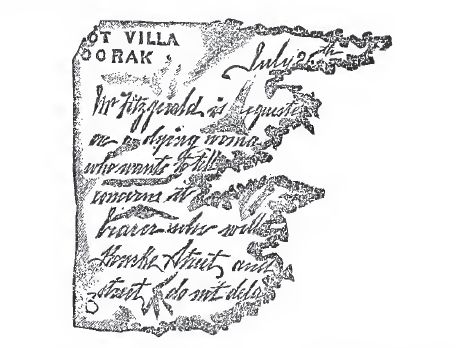 OT VILLA
OORAK
July 26th
Mr Fitzgerald is equeste
a dying woma
who wants to tell
concerns it
bearer who will
Bourke Street and
street do not dela